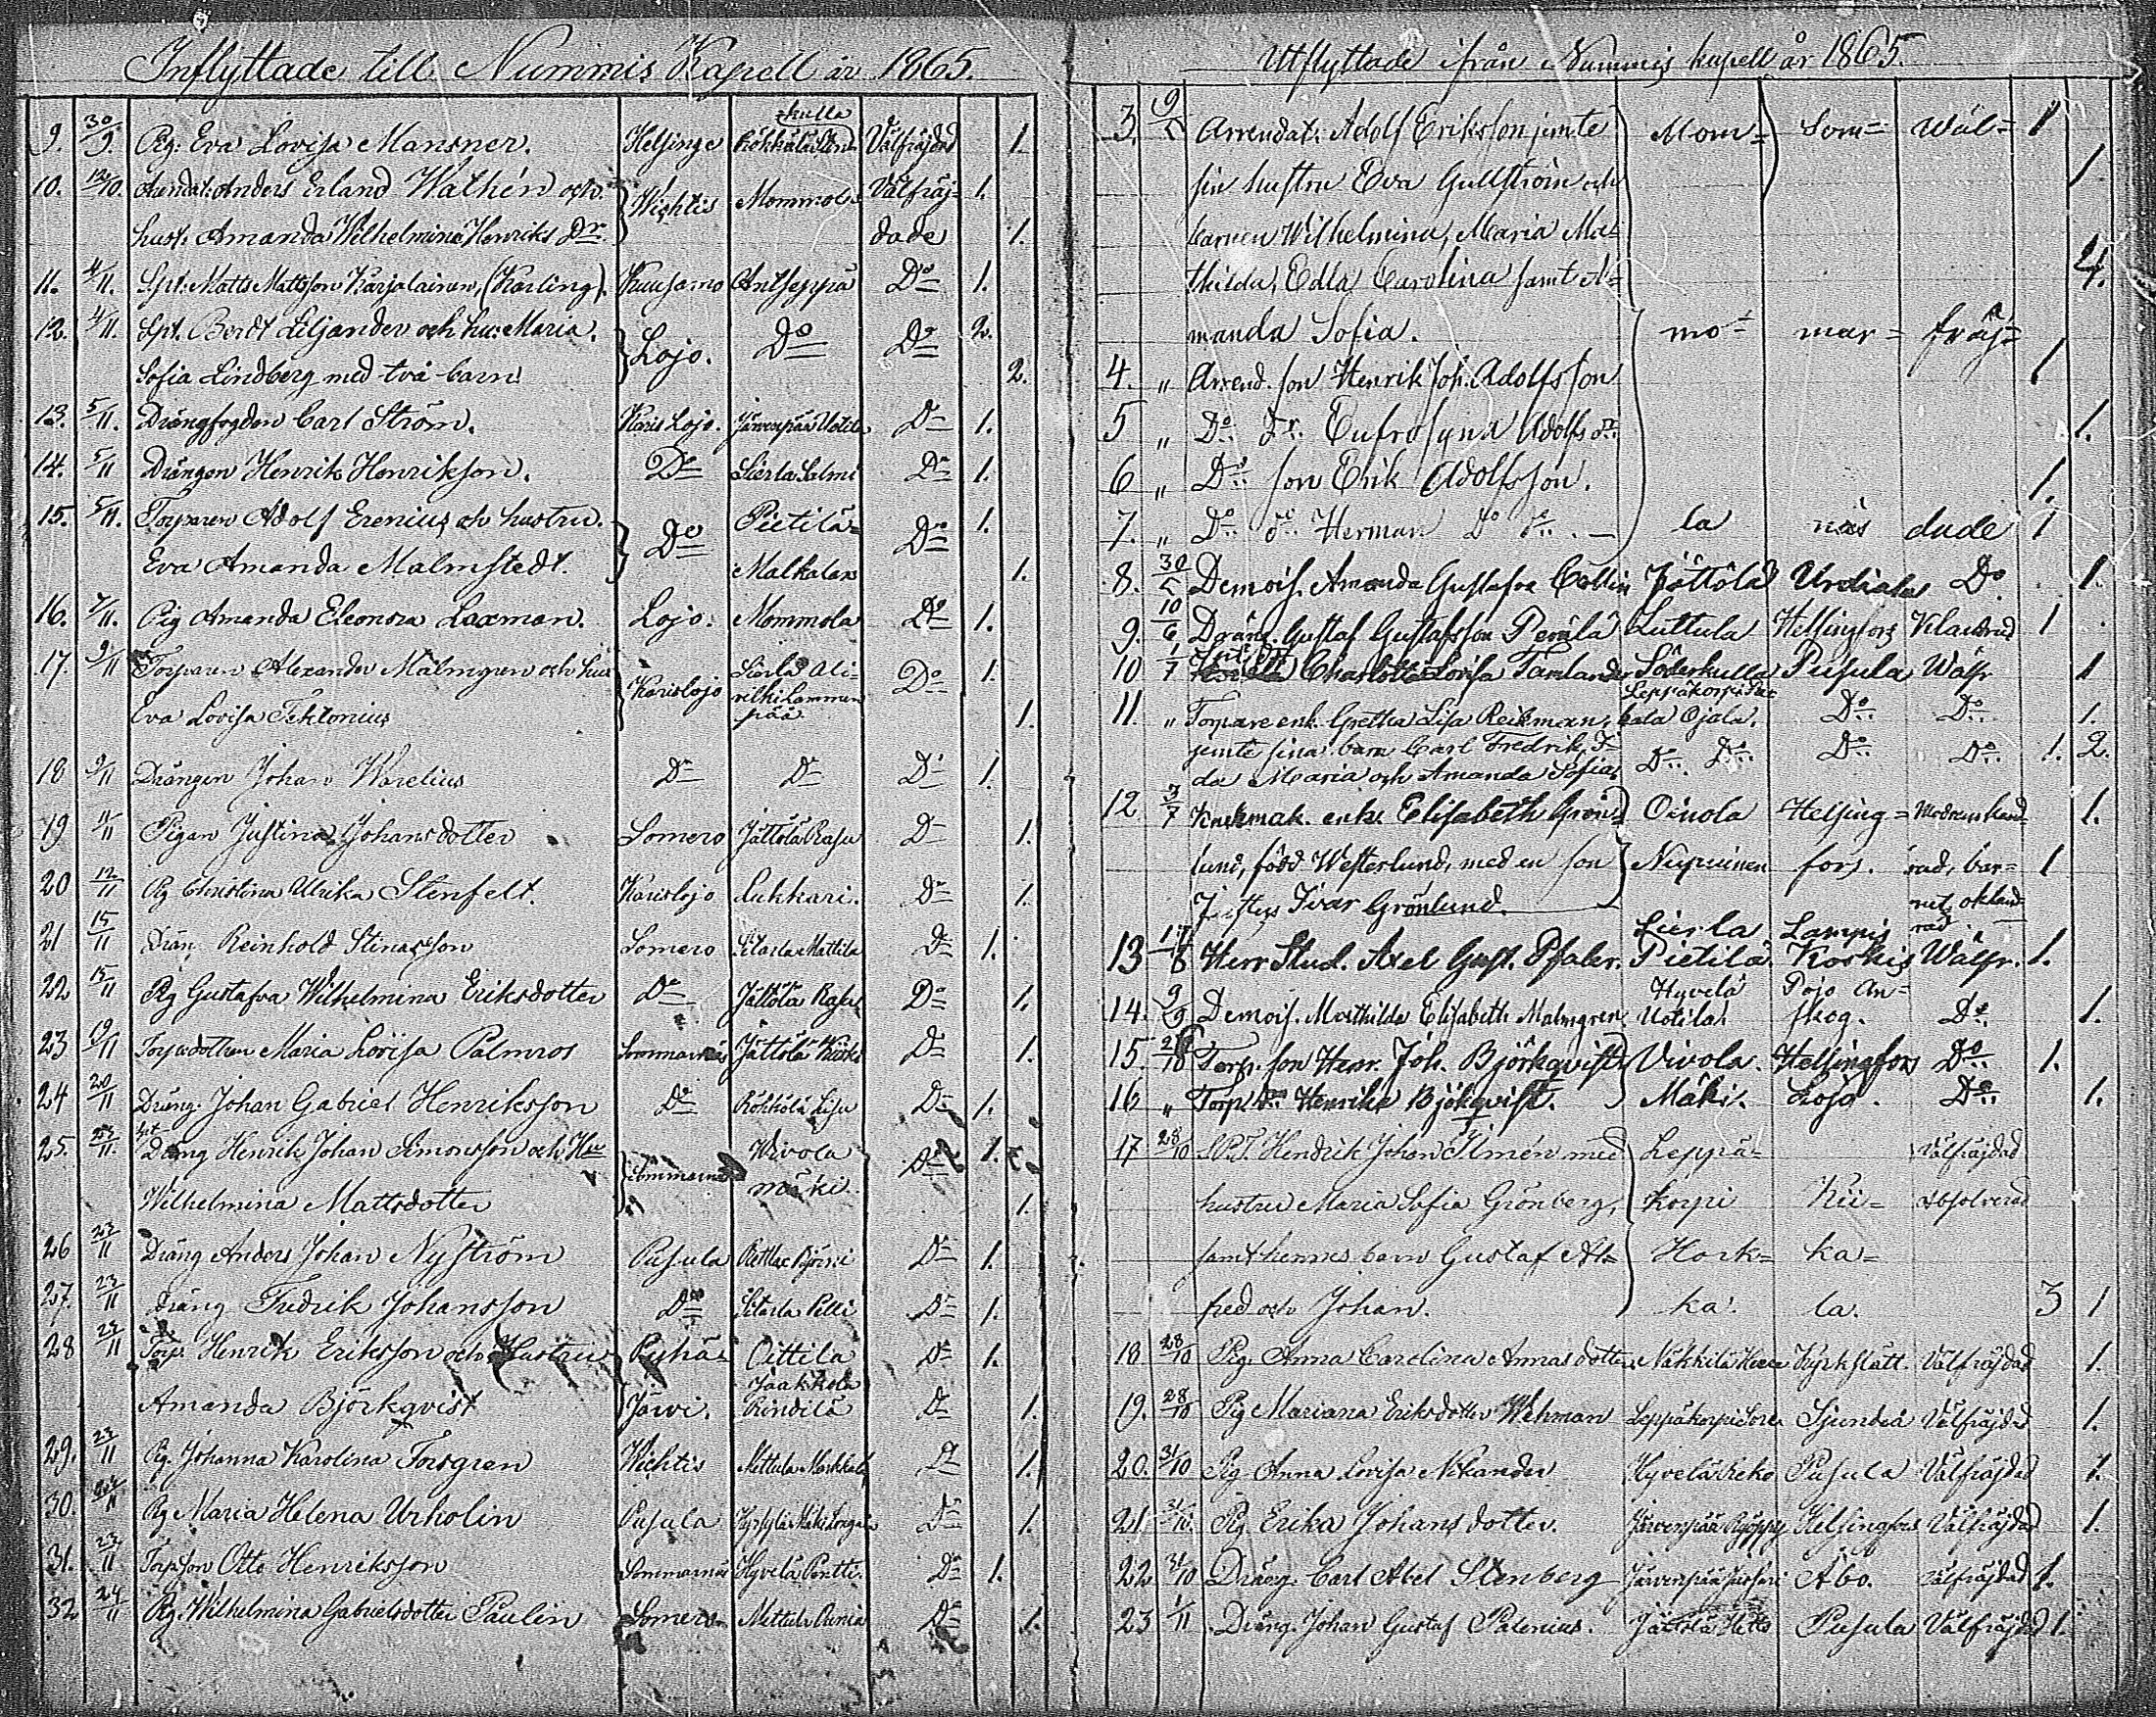 Inflyttade till Nummis Kapell år 1865.
9. 30/9. Pig. Eva Lovisa Mansner. Helsinge Välfräjdad 1.
10. 12/10. Arendat. Anders Erland Wathén och Wichtis Mommola Välfräj- 1.
hust. Amanda Wilhelmina Henriks Dr. dade 1.
11. 4/11. Spt. Matts Mattsson Karjalainen, (Karling). Kuusamo Antseppä Do 1.
12. 4/11. Spt. Berdt Liljander och hu: Maria. Lojo. Do Do 2.
Sofia Lindberg med två barn 2.
13. 5/11. Drängfogden Carl Ström. Karis Lojo. Järvenpää Uotila Do 1.
14. 5/11 Drängen Henrik Henriksson. Do Sierla Salmi Do 1.
15. 5/11. Torparen Adolf Erenius och hustru. Do Pietilä- Do 1.
Eva Amanda Malmstedt. Malkalax 1.
16. 7/11. Pig Amanda Eleonora Laxman. Lojo. Mommola Do 1.
17. 9/11 Torparen Alexander Malmgren och hus Karislojo Sierla Ali- Do 1.
Eva Lovisa Tektonius 1.
18 9/11 Drängen Johan Warelius Do Do Do 1.
19 11/11 Pigan Justina Johansdotter Somero Jättölä Rasu Do 1.
20 12/11 Pig Christina Ulrika Stenfelt. Karislojo Lukkari. Do 1.
21 15/11 Drän. Reinhold Stinasson Somero Sitarla Mattila Do 1.
22 15/11 Pig Gustafva Wilhelmina Eriksdotter Do Jättölä Rasu Do 1.
23 19/11 Torpardottren Maria Lovisa Palmros Sommarnäs Jättölä Do 1.
24 20/11 Dräng. Johan Gabriel Henriksson Do Röhkölä Do 1.
25. 23/11. Dräng Henrik Johan Simonsson och Hu Sommarnäs Wivola Do 1.
Wilhelmina Mattsdotter mäki. 1.
26 23/11 Dräng Anders Johan Nyström Pusula Do 1.
27. 23/11 Dräng Fredrik Johansson Do Sitarla Pelli Do 1.
28 23/11 Torp. Henrik Eriksson och Hustru Pyhä- Oittila Do 1.
Jaakkola
Amanda Björkqvist Järvi. Rindilä Do 1.
29. 23/11 Pig. Johanna Karolina Forsgren Wichtis Mettula Markkula Do 1.
30. 11 Pig Maria Helena Urholin Pusula Do 1.
31. 23/11 Torp.son Otto Henriksson Sommarnäs Hyvelä Pentti. Do 1.
32 24/11 Pig. Wilhelmina Gabrielsdotter Paulin Somero Mettula Do 1.
Utflyttade ifrån Nummis kapell år 1865.
3. 9/5 Arrendat. Adolf Eriksson jemte Mom- Som- Wäl- 1
sin hustru Eva Gullström och 1.
barnen Wilhelmina, Maria Ma-
thilda, Edla Carolina samt A- 4.
manda Sofia. mo- mar- fräj-
4. „ Arrend. son Henrik Joh. Adolfsson 1
5 „ Do Dr. Eufrosyna Adolfsdr. 1.
6 „ Do son Erik Adolfsson. 1.
7. „ Do do Herman Do do. la näs dade 1
8. 30/5 Demois. Amanda Gustafva Collin Jättölä Urdiala Do. 1.
9. 10/6 Dräng. Gustaf Gustafsson Perälä Luttula Helsingfors Klandrad 1
10 1/7 Charlotta Lovisa Tamlander Söderkulla Pusula Wälfr 1
11. „ Torpare enk. Gretha Lisa Reikman, Ojala. Do Do 1.
jemte sina barn Carl Fredrik, I- Do. Do. Do. Do. 1. 2.
da Maria och Amanda Sofia
12 3/7 enka Elisabeth Grön- Oinola Helsing- Modren kland- 1.
lund, född Westerlund, med en son Nupuinen fors. rad, bar- 1
Justus Ivar Grönlund. net, okland-
Sierla Lampis rad.
13 17/8 Herr Stud. Axel Gust. Pfaler. Pietilä. Koskis Wälfr. 1.
Hyvelä Pojo An-
14. 9/9 Demois. Mathilda Elisabeth Malmgren Uotila. skog. Do. 1.
15. 2/10 Torp. son Henr. Joh. Björkqvist Vivola. Helsingfors Do. 1.
16 „ Torp. Dr. Henrika Björkqvist. Mäki. Lojo. Do. 1.
17 28/10 Spt. Hendrik Johan Ilmén med Leppä- Välfräjdad
hustru Maria Sofia Grönberg, korpi Kii- Absolverad
samt hennes barn Gustaf Al- Hork- ka-
fred och Johan. ka. la. 3 1
18 28/10 Pig. Anna Carolina Annasdotter Näkkilä Kyrkslätt. Välfräjdad 1.
19. 28/10 Pig Mariana Eriksdotter Wehman Leppäkorpi Sjundeå Välfräjdad 1.
20. 31/10 Pig Anna Lovisa Nikander Hyvelä Erko Pusula Välfräjdad 1.
21 31/10. Pig. Erika Johansdotter. Järvenpää Helsingfors Välfräjdad 1.
22 31/10 Dräng. Carl Abel Stenberg Järvenpää Åbo. Välfräjdad 1.
23 1/11 Dräng. Johan Gustaf Palenius. Jättölä Pusula Välfräjdad 1.